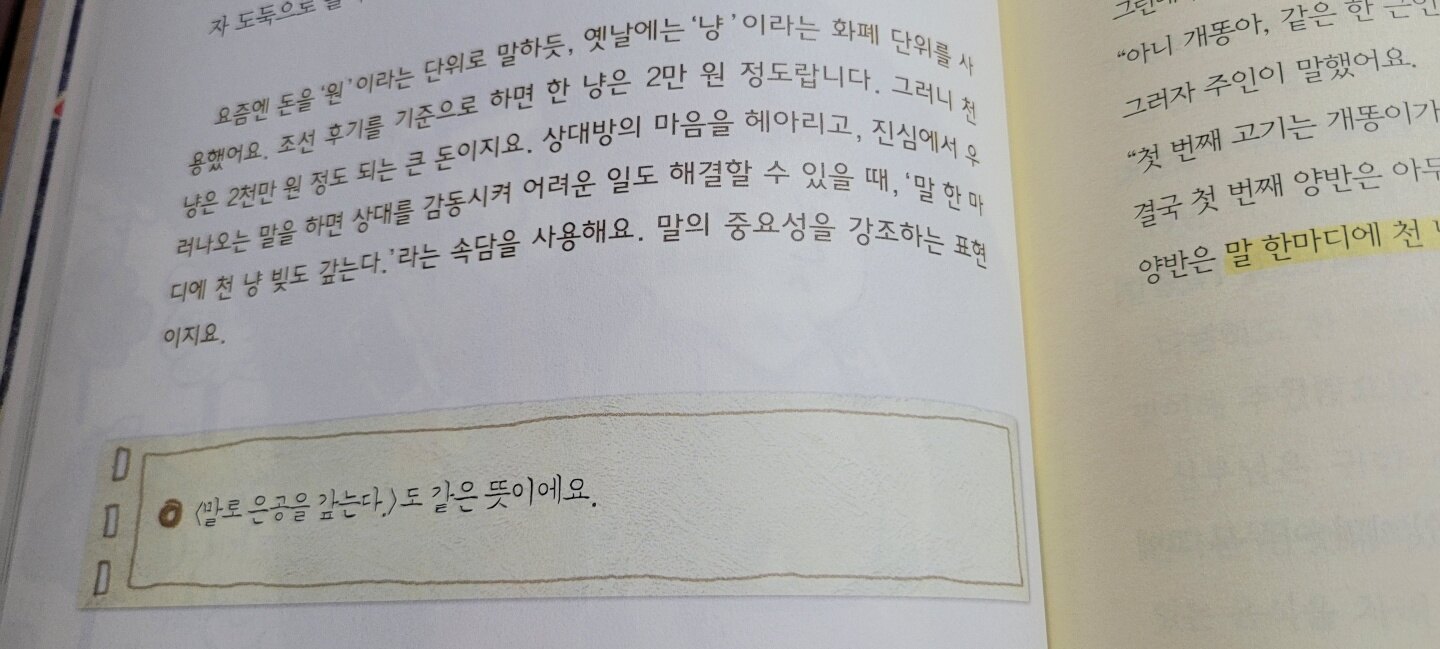 자 도둑으로
요즘엔 돈을 '원'이라는 단위로 말하듯, 옛날에는 '냥'이라는 화폐 단위를 사
용했어요. 조선 후기를 기준으로 하면 한 냥은 2만 원 정도랍니다. 그러니 천
냥은 2천만 원 정도 되는 큰 돈이지요. 상대방의 마음을 헤아리고, 진심에서 우
러나오는 말을 하면 상대를 감동시켜 어려운 일도 해결할 수 있을 때, '말 한 마
디에 천 냥 빚도 갚는다.'라는 속담을 사용해요. 말의 중요성을 강조하는 표현
이지요.
〈말로 은공을 갚는다.〉도 같은 뜻이에요.
"아니 개똥아, 같은 한 근인
그러자 주인이 말했어요.
"첫 번째 고기는 개똥이가
결국 첫 번째 양반은 아무
양반은 말 한마디에 천